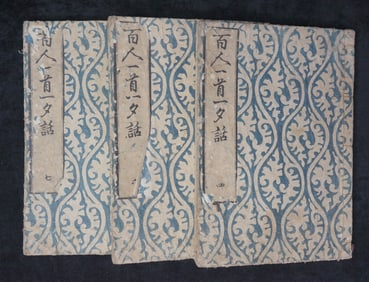 百人一首一夕話 七
百人一首一夕話
百人一首一夕話 四